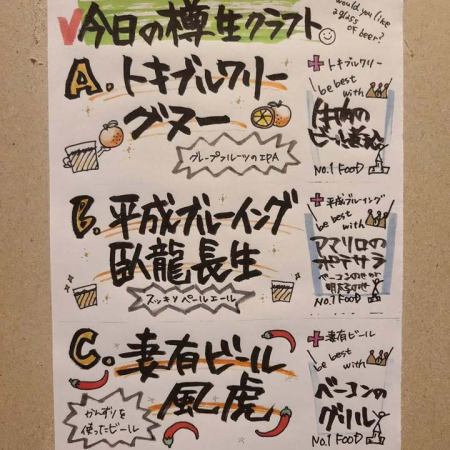 ✓今日の樽生クラフト
would you like
a glass
of beer?
A. トキブルワリー
グヌー
グレープフルーツのIPA
+トキブルワリー
be best
with
牛肉の
ビール煮込
No.1 FOOD
B. 平成ブルーイング
臥龍長生
スッキリペールエール
+平成ブルーイング
be best
with
アマリロの
ポテサラ
ベーコンのせか
明太子のせ
No.1 FOOD
C. 妻有ビール
風虎
かんずりを
使ったビール
+妻有ビール
be best
with
ベーコンの
グリル
No.1 FOOD